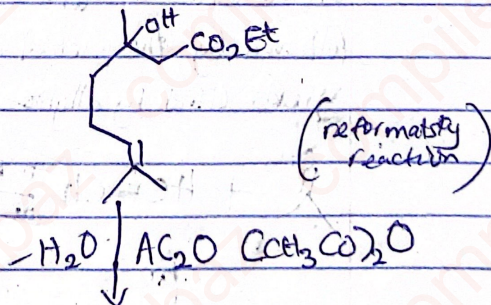 OH
CO₂Et
(reformatsky
reaction)
-H₂O AC₂O (CH₃CO)₂O